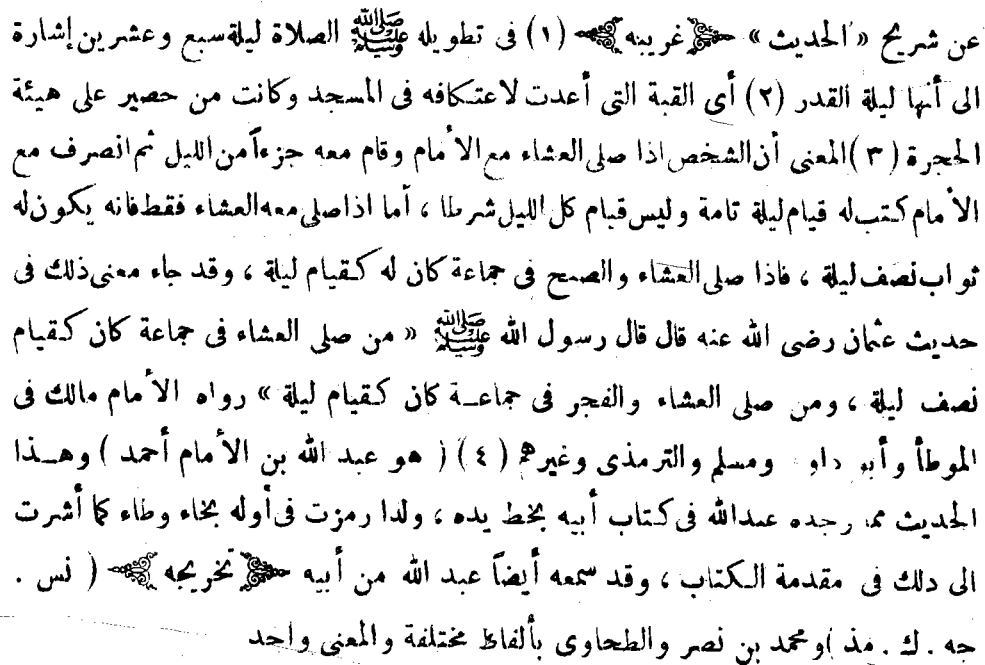 عن شريح «الحديث» غريبه (١) فى تطويله ﷺ الصلاة ليلة سبع وعشرين إشارة
الى أنها ليلة القدر (٢) أى القبة التى أعدت لاعتكافه فى المسجد وكانت من حصير على هيئة
الحجرة (٣) المعنى أن الشخص اذا صلى العشاء مع الأمام وقام معه جزءاً من الليل ثم انصرف مع
الأمام كتب له قيام ليلة تامة وليس قيام كل الليل شرطا ، أما اذا صلى معه العشاء فقط فانه يكون له
ثواب نصف ليلة ، فاذا صلى العشاء والصبح فى جماعة كان له كقيام ليلة ، وقد جاء معنى ذلك فى
حديث عثمان رضى الله عنه قال قال رسول الله ﷺ « من صلى العشاء فى جماعة كان كقيام
نصف ليلة ، ومن صلى العشاء والفجر فى جماعة كان كقيام ليلة » رواه الأمام مالك فى
الموطأ وأبو داو ومسلم والترمذى وغيرهم (٤) ( هو عبد الله بن الأمام أحمد ) وهذا
الحديث مما وجده عبد الله فى كتاب أبيه بخط يده ، ولذا رمزت فى أوله بخاء وطاء كما أشرت
الى ذلك فى مقدمة الكتاب ، وقد سمعه أيضاً عبد الله من أبيه تخريجه ( نس .
جه . ك . مذ ) ومحمد بن نصر والطحاوى بألفاظ مختلفة والمعنى واحد